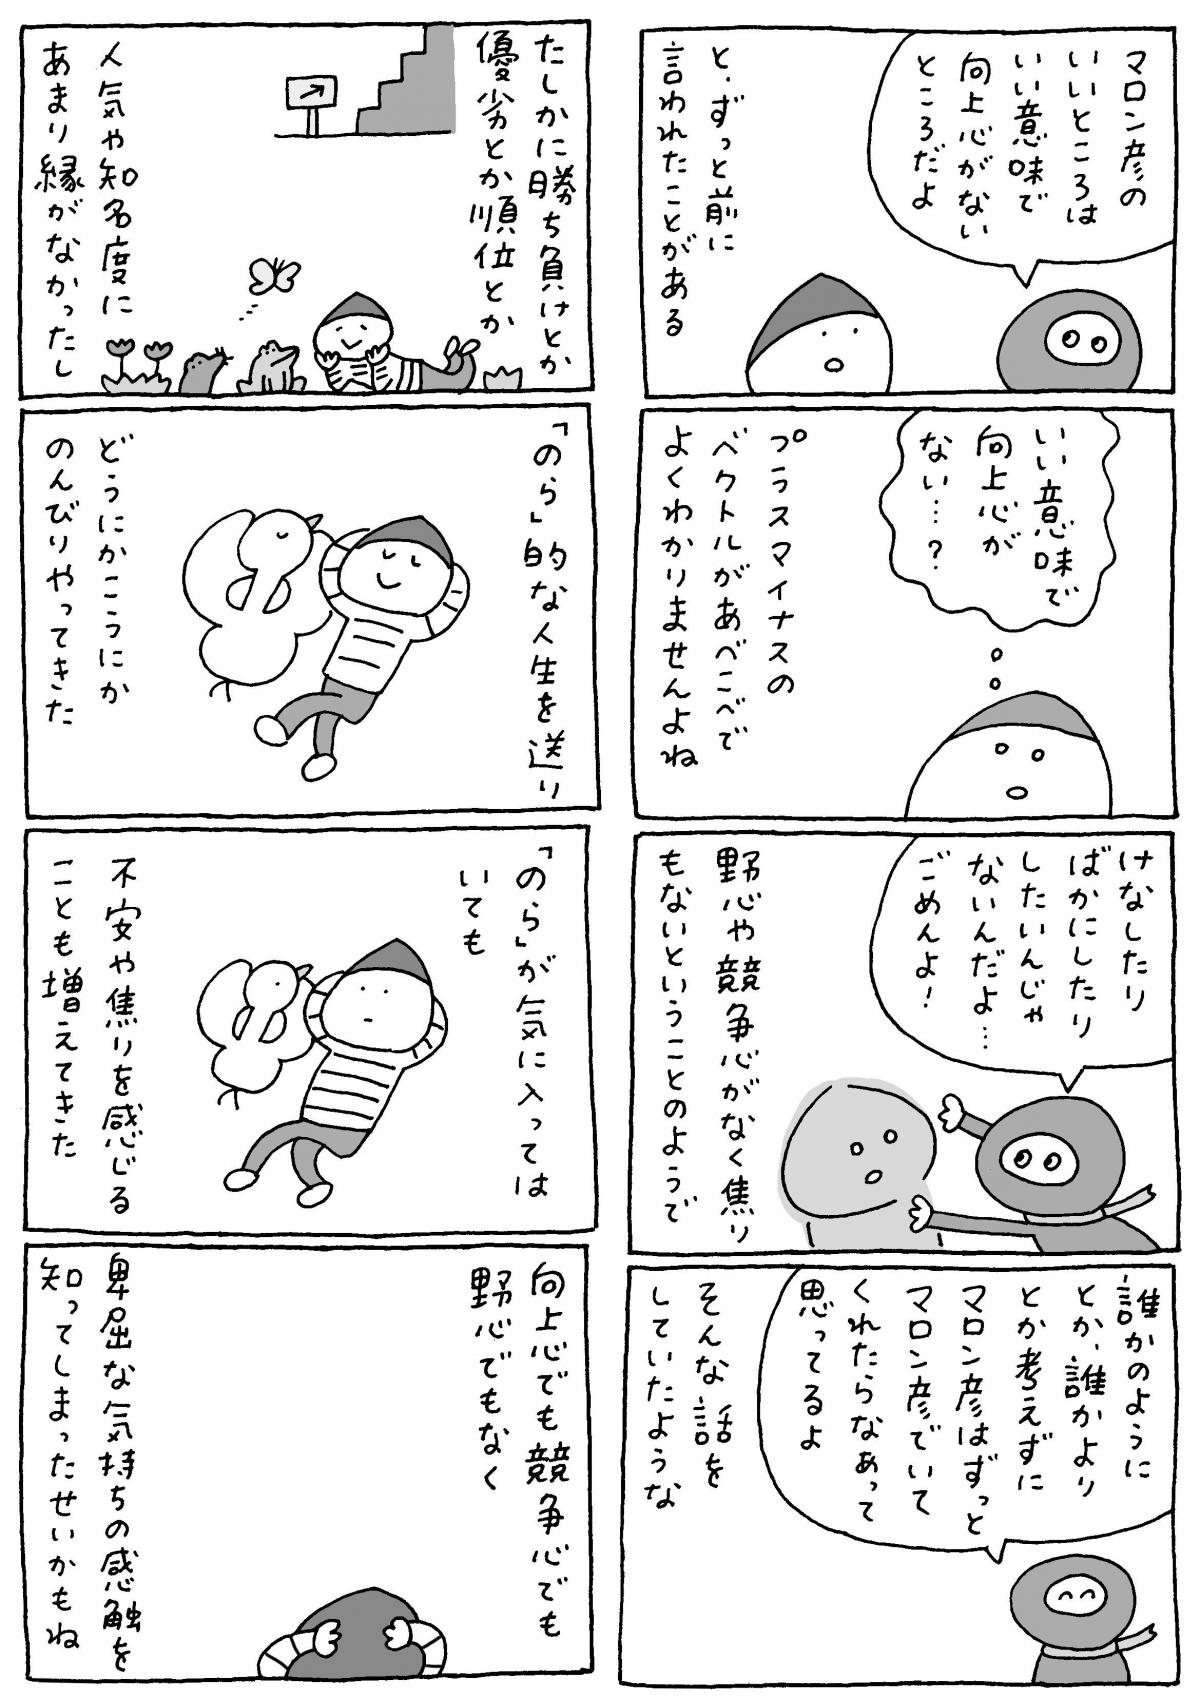 マロン彦の
いいところは
いい意味で
向上心がない
ところだよ
と、ずっと前に
言われたことがある
いい意味で
向上心が
ない…?
プラスマイナスの
ベクトルがあべこべで
よくわかりませんよね
けなしたり
ばかにしたり
したいんじゃ
ないんだよ…
ごめんよ!
野心や競争心がなく焦り
もないということのようで
誰かのように
とか、誰かより
とか考えずに
マロン彦はずっと
マロン彦でいて
くれたらなあって
思ってるよ
そんな話を
していたような
たしかに勝ち負けとか
優劣とか順位とか
人気や知名度に
あまり縁がなかったし
「のら」的な人生を送り
どうにかこうにか
のんびりやってきた
「のら」が気に入っては
いても
不安や焦りを感じる
ことも増えてきた
向上心でも競争心でも
野心でもなく
卑屈な気持ちの感触を
知ってしまったせいかもね